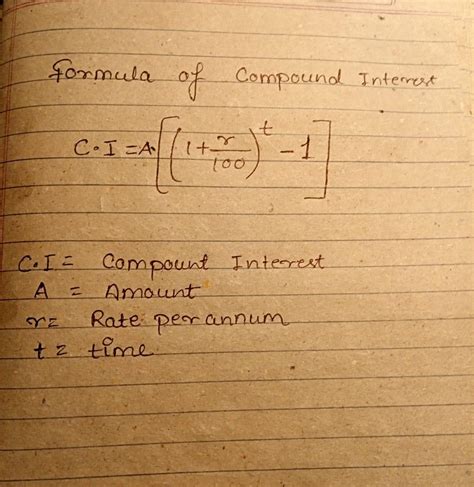 Formula of Compound Interest
C.I = A.[(1+r/100)^t - 1]
C.I = Compount Interest
A = Amount
r = Rate per annum
t = time